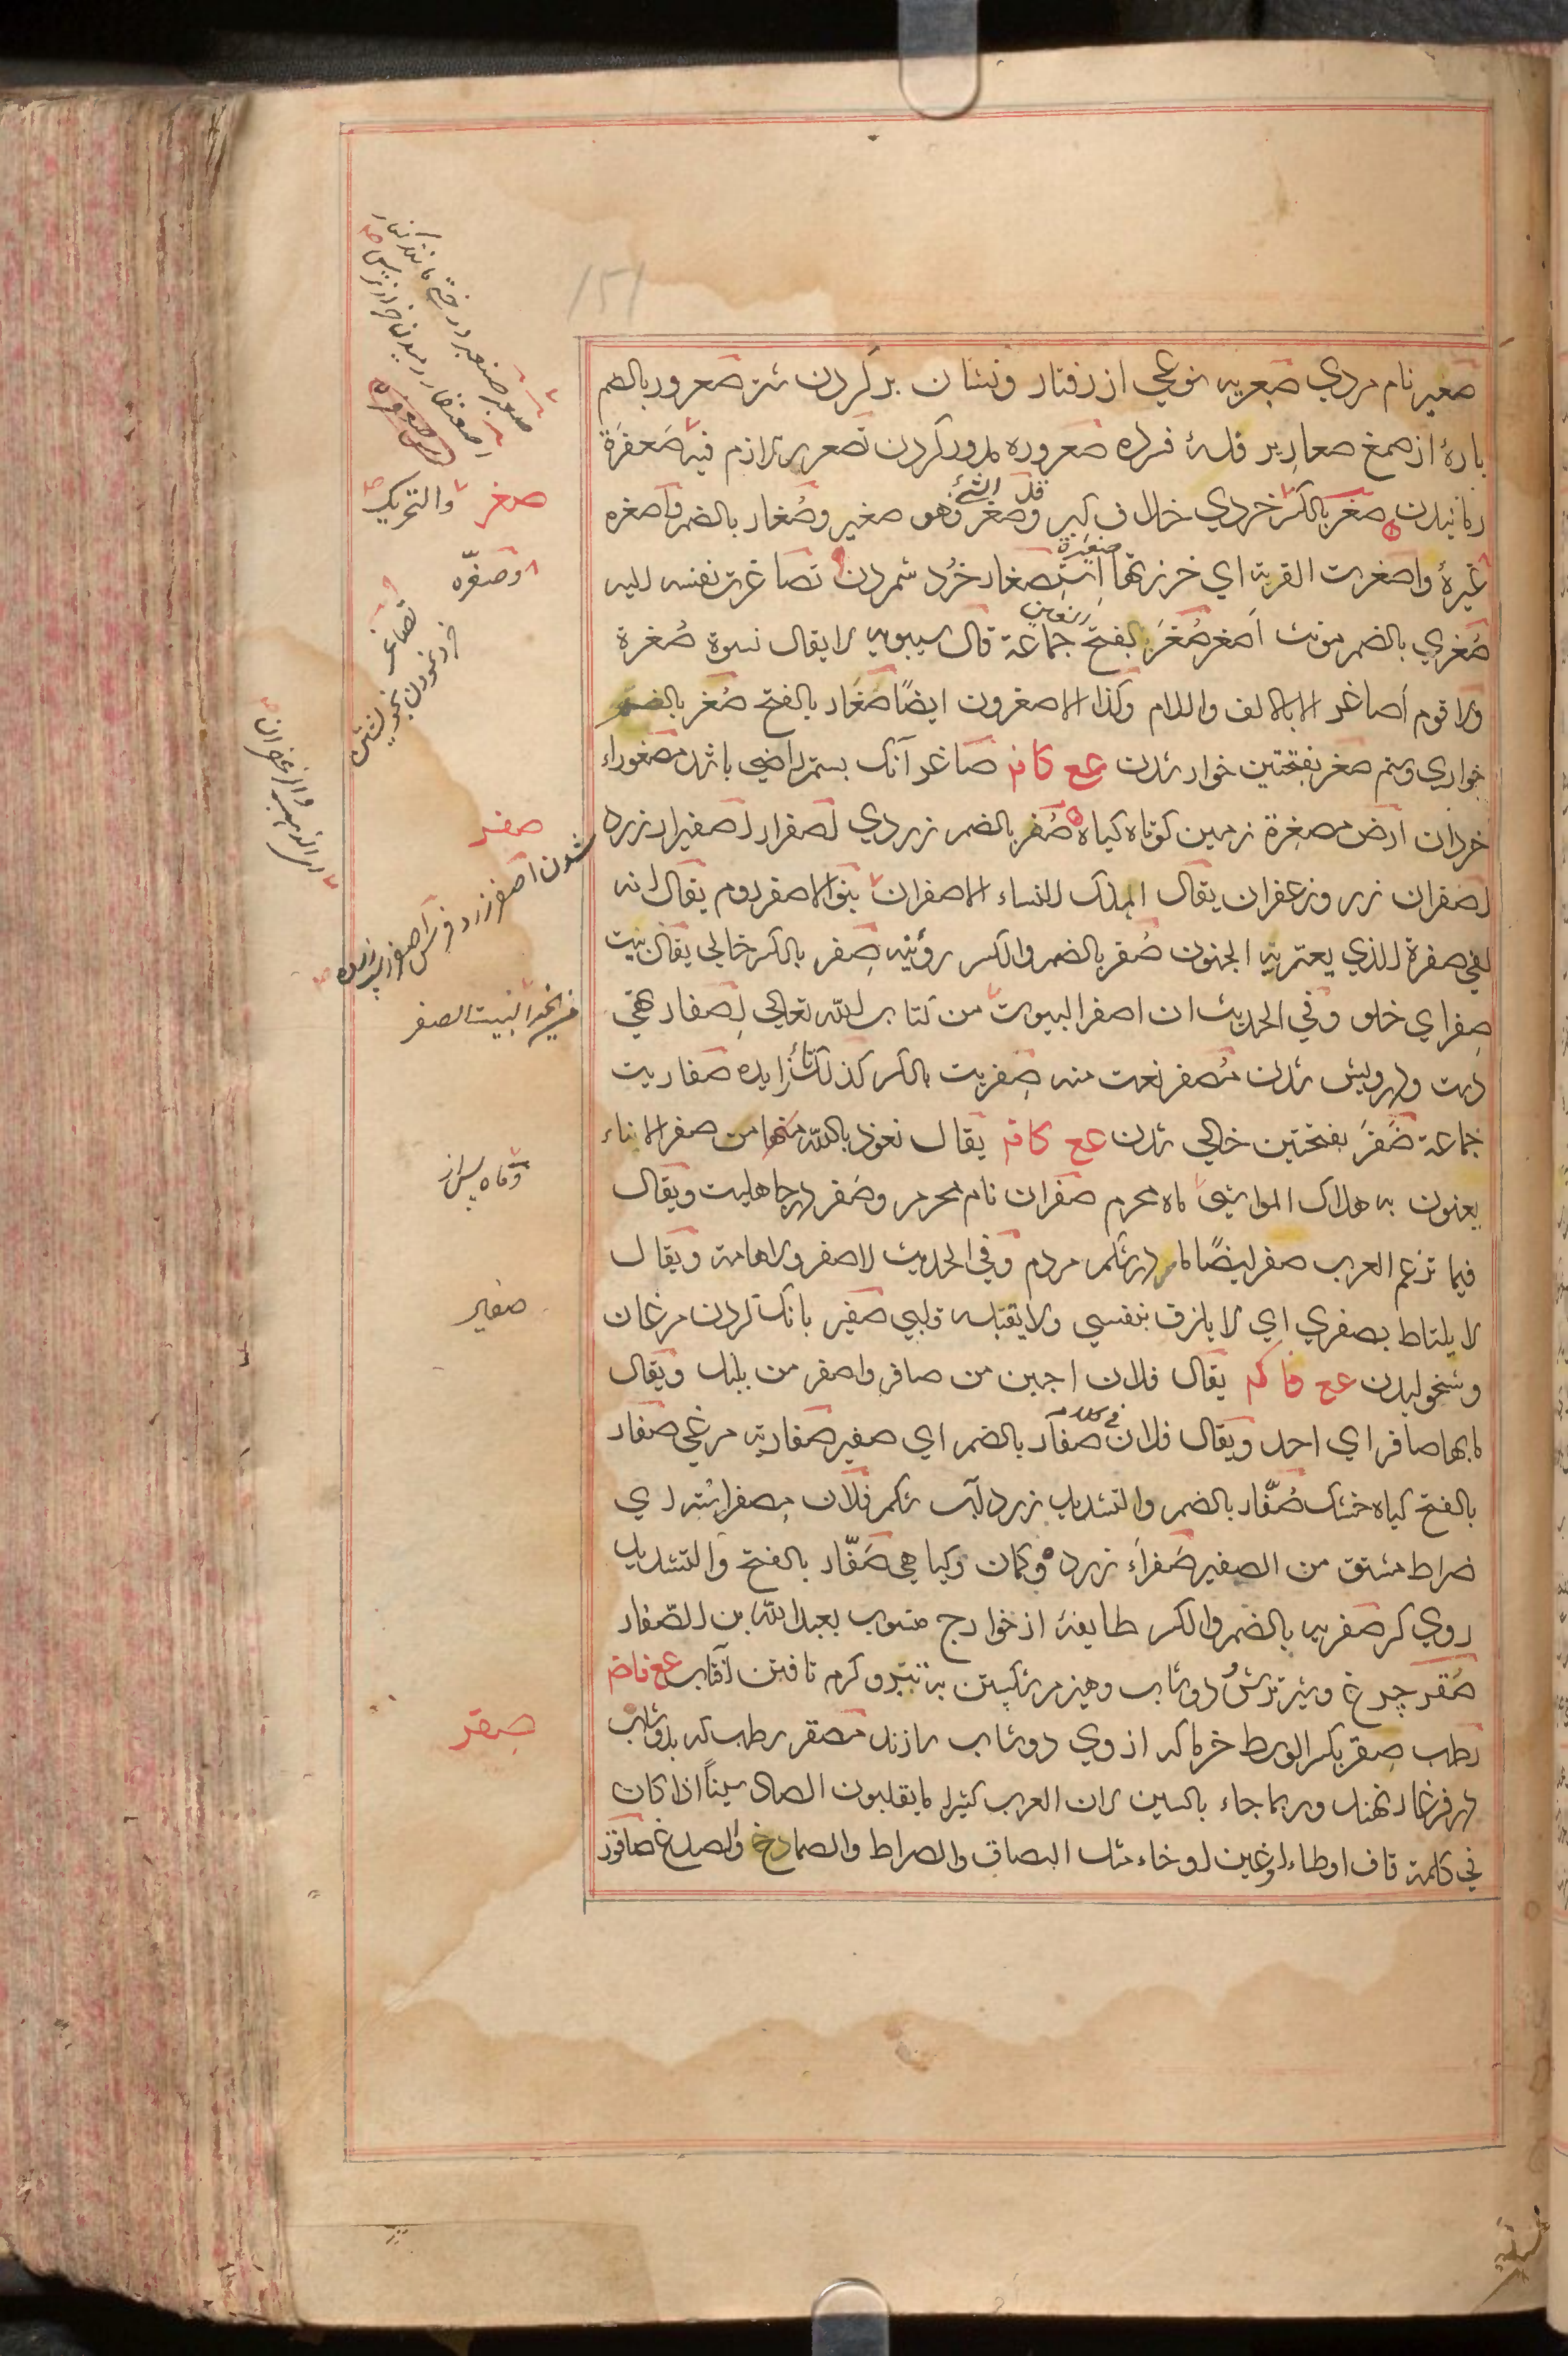 صعیر نام مردي صعریه نوعی از رفتار ونشان بر گردن شتر صعرور بالضم
پارهٔ از صمغ صعاریر فلهٔ فرده صعروره مدور کردن تصعریر لازم فیه صعفرة
رمانیدن صغر بالکسر خردي خلاف کبر وقد صغر الشئ فهو صغیر وصغار بالضم واصغره
غیرهٔ واصغرت القربة اي خرزتها صغیرة استصغار خرد شمردن تصاغرت نفسه الیه
صغري بالضم مونث اصغر صغر بالفتح جماعة قال سیبویه لا یقال نسوة صغرة
ولا قوم اصاغر الا بالالف واللام وکذا الاصغرون ایضًا صغار بالفتح صغر بالضم
خواري وستم صغر بفتحتین خوار شدن عع کاف صاغر آنک بستم راضي باشد مصغوراء
خردان ارض مصغرة زمین کوتاه کیاه صفر بالضم زردي اصفرار اصفیرار زرد
اصفران زر وزعفران یقال اهلک النساء الاصفران بنو الاصفر روم یقال انه
لفي صفرة للذي یعتریه الجنون صفر بالضم والکسر روئینه صفر بالکسر خالی یقال بیت
صفر اي خلو وفي الحدیث ان اصفر البیوت من کتاب الله تعالی اصفار تهي
دست ودرویش شدن مصفر نعت منه صفریت بالکسر کذلک تا زایده صفاریت
جماعة صفر بفتحتین خالی شدن عع کاف یقال نعوذ بالله منها من صفر الاناء
یعنون به هلاک المواشي ماه محرم صفران نام محرم وصفر در جاهلیت ویقال
فیما تزعم العرب صفر ایضًا مار در شکم مردم وفي الحدیث لا صفر ولا هامة ویقال
لا یلتاط بصفري اي لا یلزق بنفسي ولا یقبله قلبي صفیر بانک کردن مرغان
وشخولیدن عع فا کم یقال فلان اجبن من صافر واصفر من بلبل ویقال
ما بها صافر اي احد ویقال فلان في کلامه صفار بالضم اي صفیر صفاریه مرغي صفار
بالفتح کیاه خشک صفار بالضم والتشدید زرد آب شکم فلان مصفر استه اي
ضراط مشتق من الصفیر صفراء زرد وکمان وکیاهي صفار بالفتح والتشدید
روي کر صفریه بالضم والکسر طایفهٔ از خوارج منسوب بعبد الله بن الصفار
صقر چرغ وشیر ترش ودوشاب وهیزم شکستن به تبر وگرم تافتن آفتاب عع فاض
رطب صقر بکسر الوسط خرما که از وي دوشاب سازند مصقر رطب که بدوشاب
در فرغار نهند وربما جاء بالسین لان العرب کثیرا ما یقلبون الصاد سیناً اذا کان
في کلمة قاف او طاء او غین او خاء مثل البصاق والصراط والصماخ والصدغ صاقور
صغر
والتحریک
وصغّره
تصاغر
خرد نمودن بخویشتن
صفر
شدن اصفر زرد
البیت الصفر
وماه پس از
صفیر
صقر